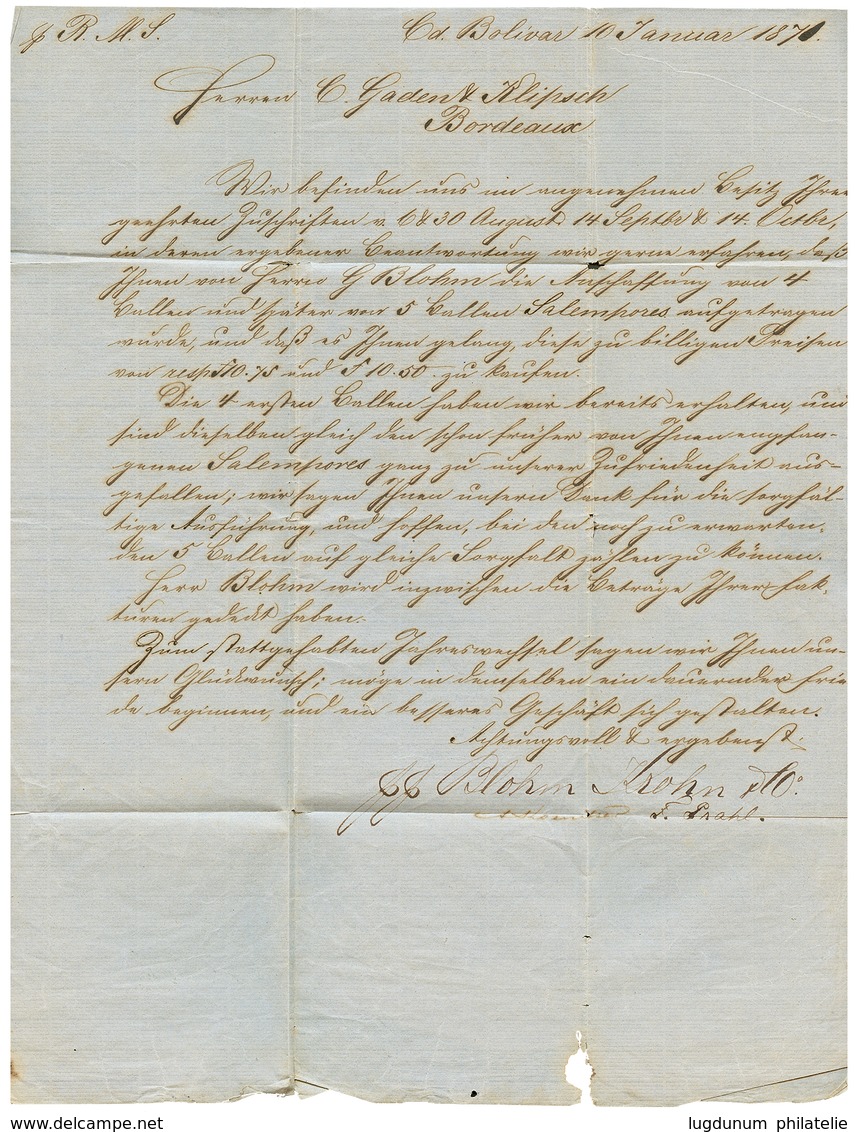 p R. M. S.
Cd. Bolivar 10 Januar 1871.
Herren C. Gaden & Klipsch
Bordeaux
Wir befinden uns im angenehmen Besitz Ihrer
geehrten Zuschriften v. 6 & 30 August 14 Septbr & 14. Octbr,
in deren ergebener Beantwortung wir gerne erfahren, daß
Ihnen von Herrn G Blohm die Anschaffung von 4
Ballen und später von 5 Ballen Salempores aufgetragen
wurde, und daß es Ihnen gelang, diese zu billigen Preisen
von resp f 10.75 und F 10.50 zu kaufen.
Die 4 ersten Ballen haben wir bereits erhalten, und
sind dieselben gleich den schon früher von Ihnen empfan-
genen Salempores ganz zu unserer Zufriedenheit aus-
gefallen; wir sagen Ihnen unsern Dank für die sorgfäl-
tige Ausführung, und hoffen, bei den noch zu erwarten-
den 5 Ballen auf gleiche Sorgfalt zählen zu können.
Herr Blohm wird inzwischen die Beträge Ihrer Fak-
turen gedeckt haben.
Zum stattgehabten Jahreswechsel sagen wir Ihnen un-
sern Glückwunsch; möge in demselben ein dauernder Frie
de beginnen, und ein besseres Geschäft sich gestalten.
Achtungsvoll & ergebenst
pp Blohm Krohn & Co.
F. Prahl.
www.delcampe.net
lugdunum philatelie